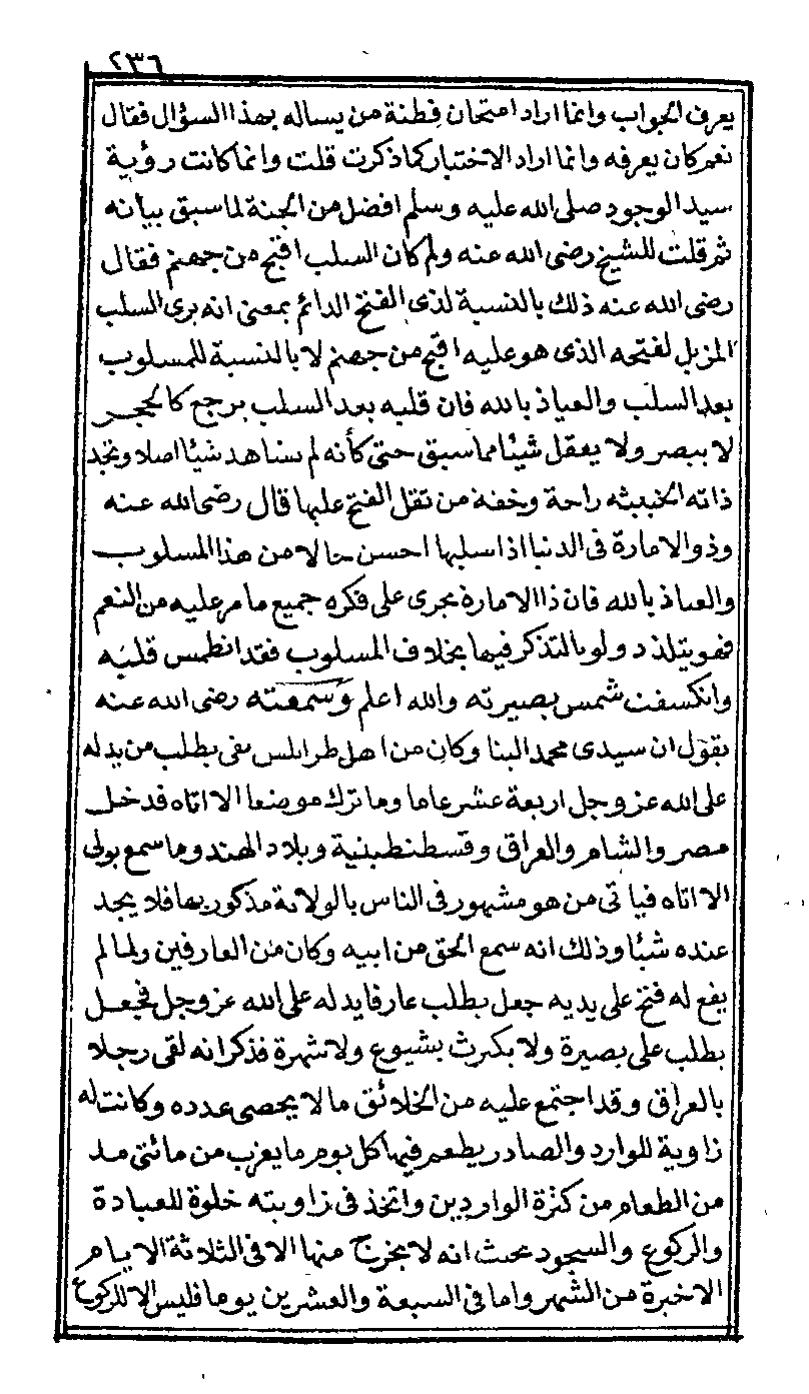 ٢٣٦
يعرف الجواب وانما اراد امتحان فطنة من يساله بهذا السؤال فقال
نعم كان يعرفه وانما اراد الاختبار كما ذكرت قلت وانما كانت رؤية
سيد الوجود صلى الله عليه وسلم افضل من الجنة لما سبق بيانه
ثم قلت للشيخ رضى الله عنه ولم كان السلب اقبح من جهنم فقال
رضى الله عنه ذلك بالنسبة لذى الفتح الدائم بمعنى انه يرى السلب
المزيل لفتحه الذى هو عليه اقبح من جهنم لا بالنسبة للمسلوب
بعد السلب والعياذ بالله فان قلبه بعد السلب يرجع كالحجر
لا يبصر ولا يعقل شيئا مما سبق حتى كأنه لم يشاهد شيئا اصلا وتجد
ذاته الخبيثه راحة وخفة من ثقل الفتح عليها قال رضى الله عنه
وذو الامارة فى الدنيا اذا سلبها احسن حالا من هذا المسلوب
والعياذ بالله فان ذا الامارة يجرى على فكره جميع ما مر عليه من النعم
فهو يتلذذ ولو بالتذكر فيها بخلاف المسلوب فقد انطمس قلبه
وانكسفت شمس بصيرته والله اعلم وسمعته رضى الله عنه
يقول ان سيدى محمد البنا وكان من اهل طرابلس بقى يطلب من يدله
على الله عز وجل اربعة عشر عاما وما ترك موضعا الا اتاه فدخل
مصر والشام والعراق وقسطنطينية وبلاد الهند وما سمع بولى
الا اتاه فياتى من هو مشهور فى الناس بالولاية مذكور بها فلا يجد
عنده شيئا وذلك انه سمع الحق من ابيه وكان من العارفين ولما لم
يقع له فتح على يديه جعل يطلب عارفا يدله على الله عز وجل فجعل
يطلب على بصيرة ولا يكترث بشيوع ولا شهرة فذكر انه لقى رجلا
بالعراق وقد اجتمع عليه من الخلائق ما لا يحصى عدده وكانت له
زاوية للوارد والصادر يطعم فيها كل يوم ما يقرب من مائتى مد
من الطعام من كثرة الواردين واتخذ فى زاويته خلوة للعبادة
والركوع والسجود بحيث انه لا يخرج منها الا فى الثلاثة الايام
الاخيرة من الشهر واما فى السبعة والعشرين يوما فليس الا للركوع